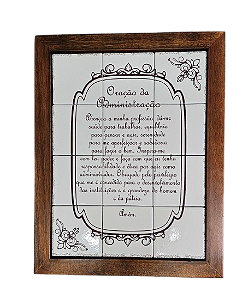 Oração da
Administração
Abençoe a minha profissão, dá-me
saúde para trabalhar, equilíbrio
para pensar e agir, serenidade
para me aperfeiçoar e sabedoria
para fazer o bem. Inspira-me
com teu poder e faça com que eu tenha
responsabilidade e ética por agir como
administrador. Obrigado pelo privilégio
que me é concedido para o desenvolvimento
das instituições e a grandeza do homem
e da pátria.
Amém.